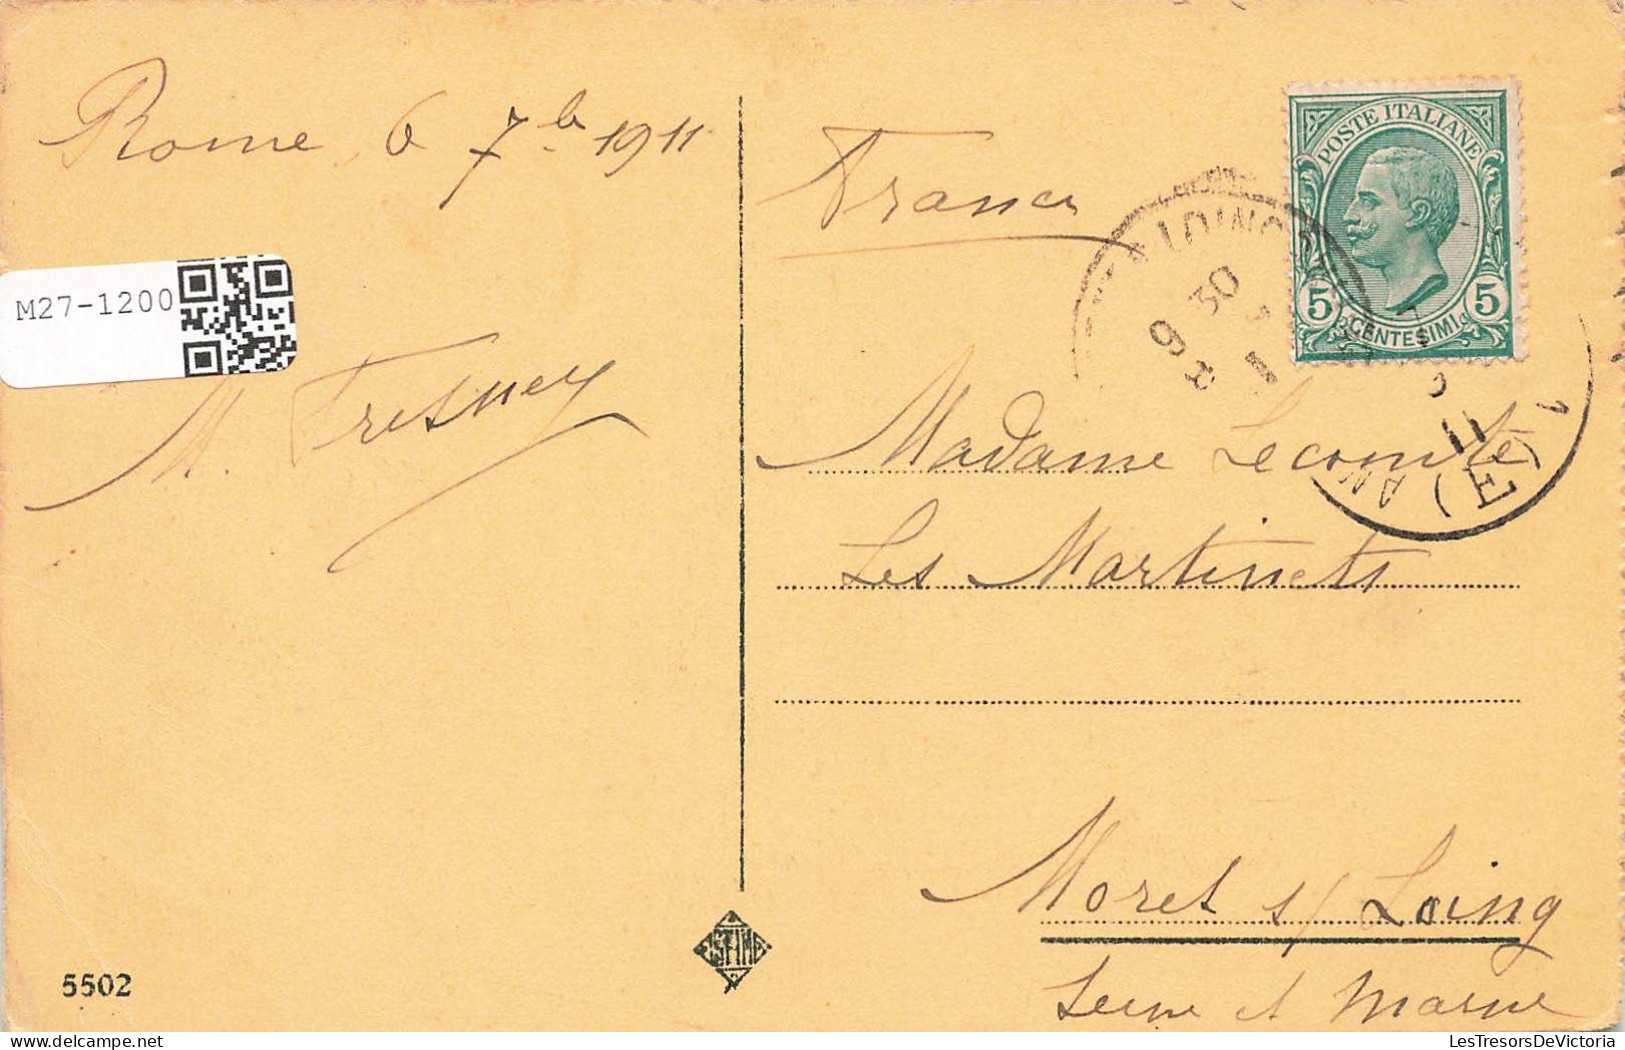 Rome 6 7bre 1911
M27-1200
M. Fresney
5502
France
POSTE ITALIANE
5 CENTESIMI 5
9 30
Madame Lecomte
Les Martinets
Moret s/ Loing
Seine et Marne
LesTresorsDeVictoria